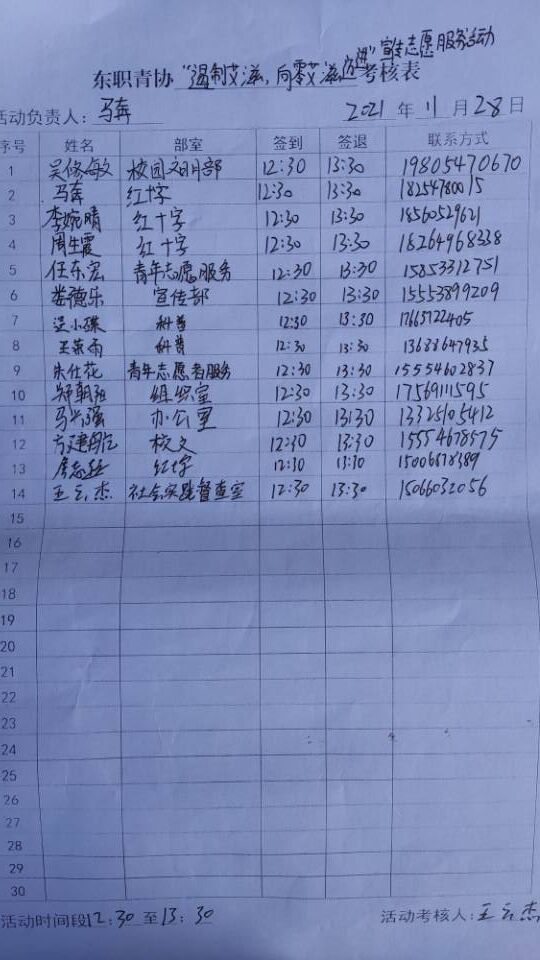 宣传志愿服务活动
东职青协“遏制艾滋,向零艾滋迈进”考核表
活动负责人: 马奔 2021年11月28日
序号 姓名 部室 签到 签退 联系方式
1 吴俊敏 校园文明部 12:30 13:30 19805470670
2 马奔 红十字 12:30 13:30 18254780015
3 李婉晴 红十字 12:30 13:30 18560529621
4 周生霞 红十字 12:30 13:30 18264968338
5 任东宏 青年志愿服务 12:30 13:30 15853312751
6 娄德乐 宣传部 12:30 13:30 15553899209
7 小 科普 12:30 13:30 17665722405
8 王荣雨 科普 12:30 13:30 13688647935
9 朱仕花 青年志愿者服务 12:30 13:30 15554602837
10 郑朝阳 组织室 12:30 13:30 17569111595
11 马兴强 办公室 12:30 13:30 13325105412
12 方建国 校文 12:30 13:30 15554678575
13 红十字 12:30 13:30 15006678389
14 王云杰 社会实践督查室 12:30 13:30 15066032056
15
16
17
18
19
20
21
22
23
24
25
26
27
28
29
30
活动时间段12:30至13:30 活动考核人: 王云杰